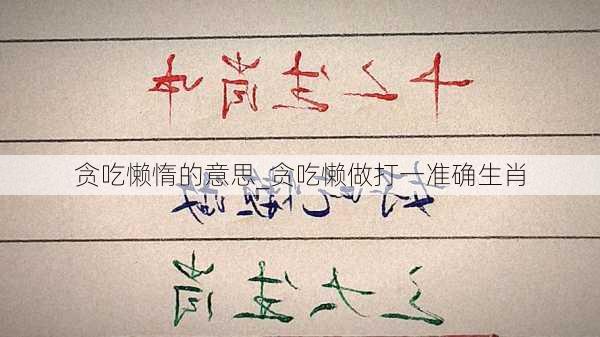 十二生肖中
贪吃懒惰的意思_贪吃懒做打一准确生肖
好吃懒做
之大生肖